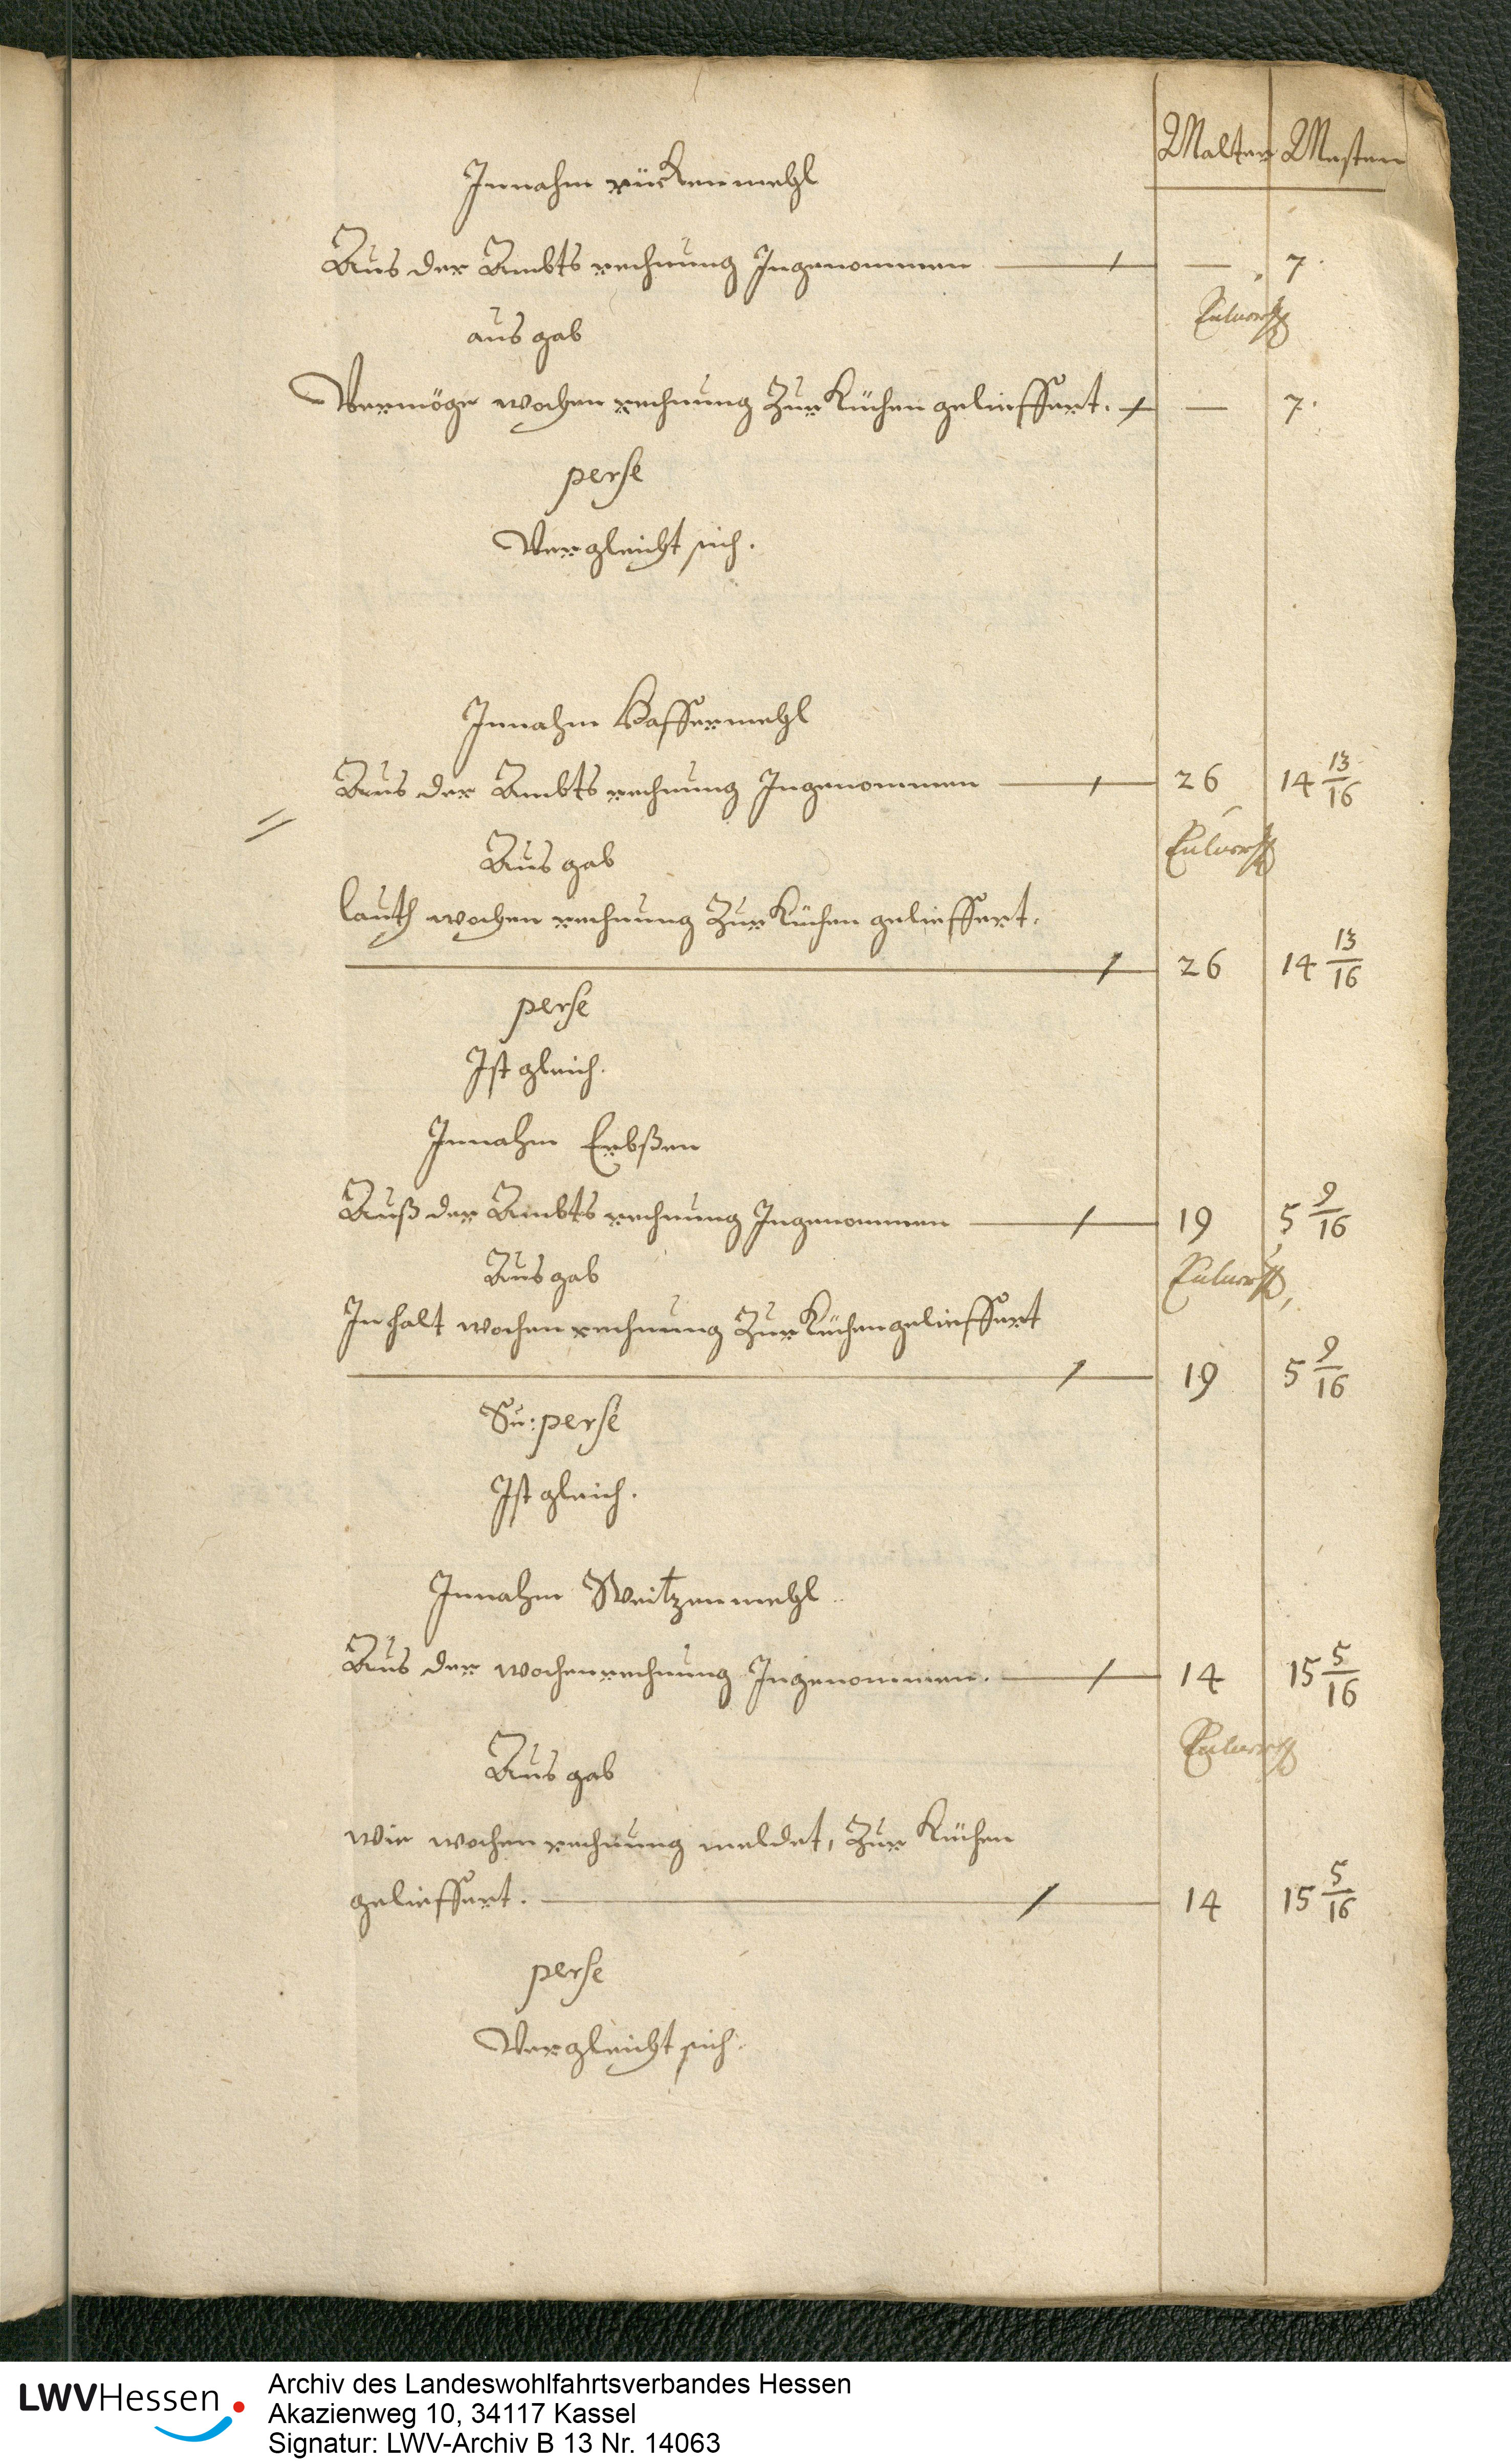 Malter Mesten
Innahm rückenmehl
Aus der Ambts rechnung Ingenommen — 7.
aus gab
Vermöge wochen rechnung Zur Küchen gelieffert. — 7.
perse
Vergleicht sich.
Innahm Haffermehl
Aus der Ambts rechnung Ingenommen 26 14 13/16
Aus gab
lauth wochen rechnung Zur Küchen gelieffert.
26 14 13/16
perse
Ist gleich.
Innahm Erbßen
Auß der Ambts rechnung Ingenommen 19 5 9/16
Aus gab
Inhalt wochen rechnung Zur Küchen gelieffert
19 5 9/16
Su: perse
Ist gleich.
Innahm Weitzenmehl
Aus der wochenrechnung Ingenommen. 14 15 5/16
Aus gab
wie wochen rechnung meldet, Zur Küchen
gelieffert. 14 15 5/16
perse
Vergleicht sich.
LWVHessen
Archiv des Landeswohlfahrtsverbandes Hessen
Akazienweg 10, 34117 Kassel
Signatur: LWV-Archiv B 13 Nr. 14063